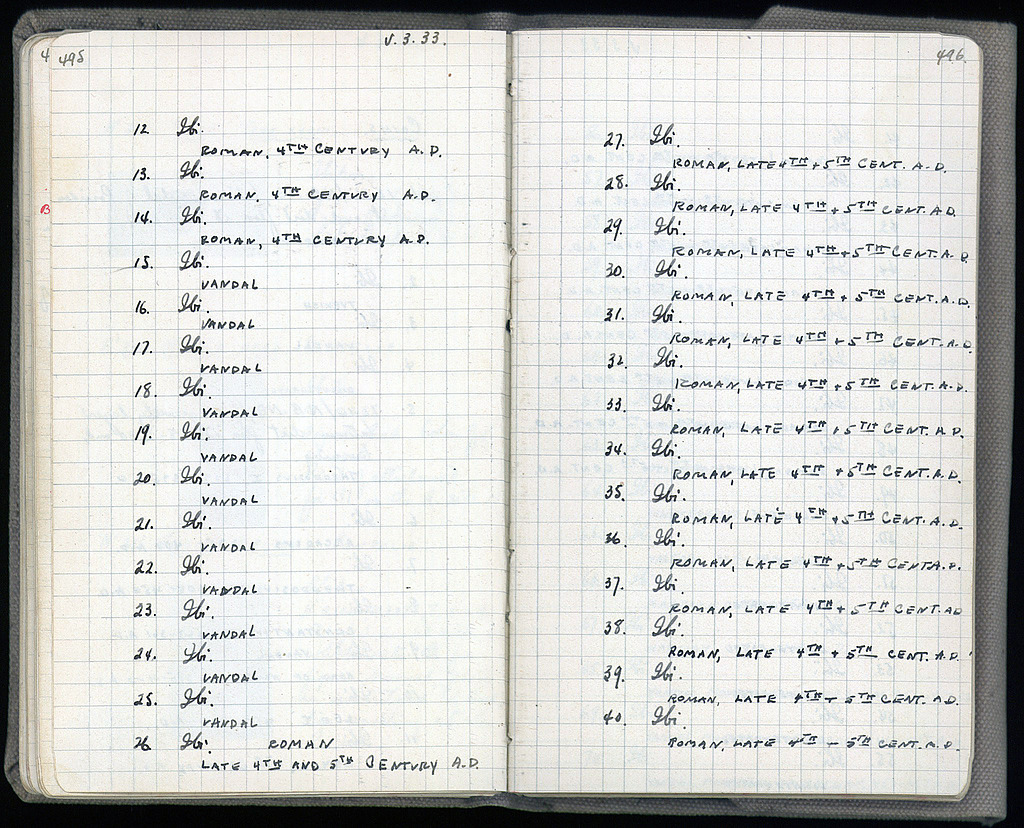 4 495
V.3.33.
12 Ibi.
ROMAN, 4TH CENTURY A.D.
13. Ibi.
ROMAN, 4TH CENTURY A.D.
B
14. Ibi.
ROMAN, 4TH CENTURY A.D.
15. Ibi.
VANDAL
16. Ibi.
VANDAL
17. Ibi.
VANDAL
18. Ibi.
VANDAL
19. Ibi.
VANDAL
20. Ibi.
VANDAL
21. Ibi.
VANDAL
22. Ibi.
VANDAL
23. Ibi.
VANDAL
24. Ibi.
VANDAL
25. Ibi.
VANDAL
26 Ibi. ROMAN
LATE 4TH AND 5TH CENTURY A.D.
496.
27. Ibi.
ROMAN, LATE 4TH + 5TH CENT. A.D.
28. Ibi.
ROMAN, LATE 4TH + 5TH CENT. AD.
29. Ibi.
ROMAN, LATE 4TH + 5TH CENT. A.D.
30. Ibi.
ROMAN, LATE 4TH + 5TH CENT. A.D.
31. Ibi.
ROMAN, LATE 4TH + 5TH CENT. A.D.
32. Ibi.
ROMAN, LATE 4TH + 5TH CENT. A.D.
33. Ibi.
ROMAN, LATE 4TH + 5TH CENT. A.D.
34. Ibi.
ROMAN, LATE 4TH + 5TH CENT. A.D.
35. Ibi.
ROMAN, LATE 4TH + 5TH CENT. A.D.
36. Ibi.
ROMAN, LATE 4TH + 5TH CENT A.D.
37. Ibi.
ROMAN, LATE 4TH + 5TH CENT. AD
38. Ibi.
ROMAN, LATE 4TH + 5TH CENT. A.D.
39. Ibi.
ROMAN, LATE 4TH + 5TH CENT. AD.
40. Ibi
ROMAN, LATE 4TH - 5TH CENT. A.D.